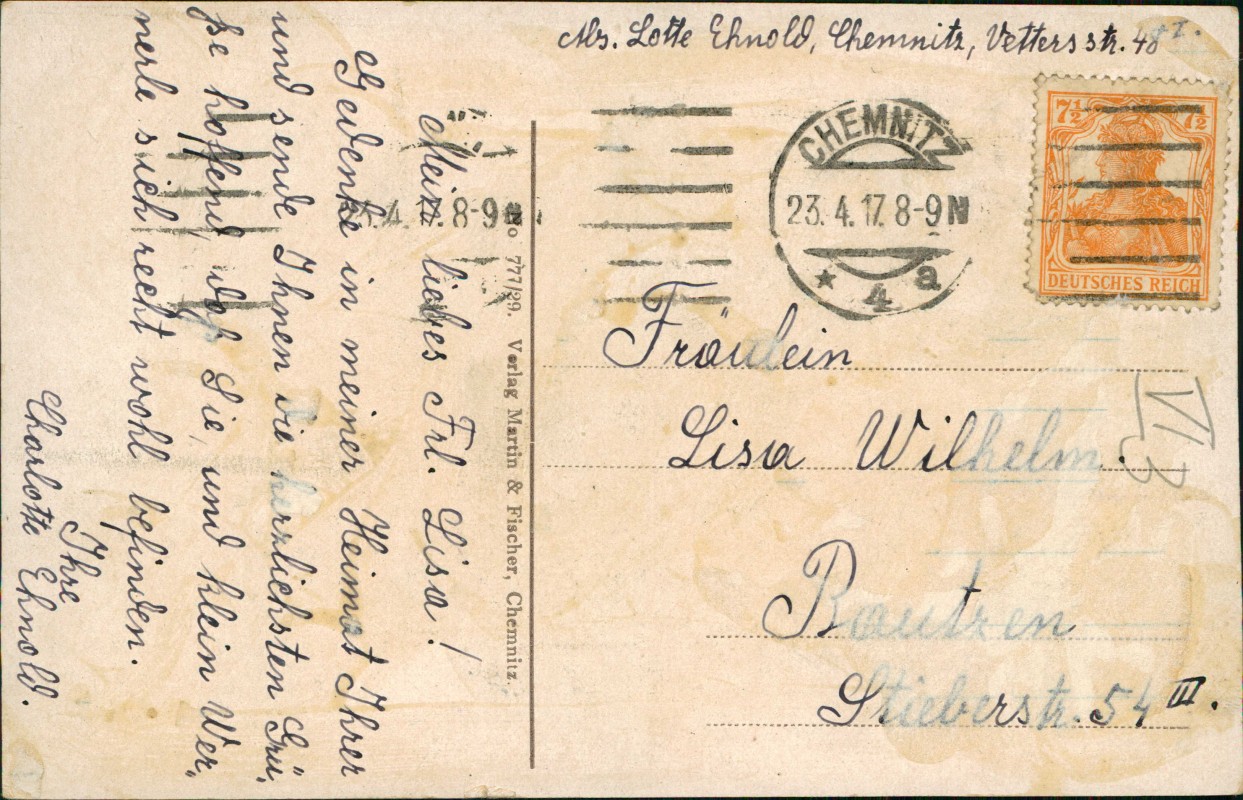 Abs. Lotte Ehnold, Chemnitz, Vettersstr. 48 I.
CHEMNITZ
23.4.17. 8-9 N
* 4 a
7½ 7½
DEUTSCHES REICH
Mein liebes Frl. Lisa!
Gedenke in meiner Heimat Ihrer
und sende Ihnen die herzlichsten Grü,
ße hoffend, daß Sie, und klein Wer,
nerle sich recht wohl befinden.
Ihre
Charlotte Ehnold.
4.17. 8-9
No 777/29. Verlag Martin & Fischer, Chemnitz.
Fräulein
Lisa Wilhelm.
Bautzen
Stieberstr. 54 III.